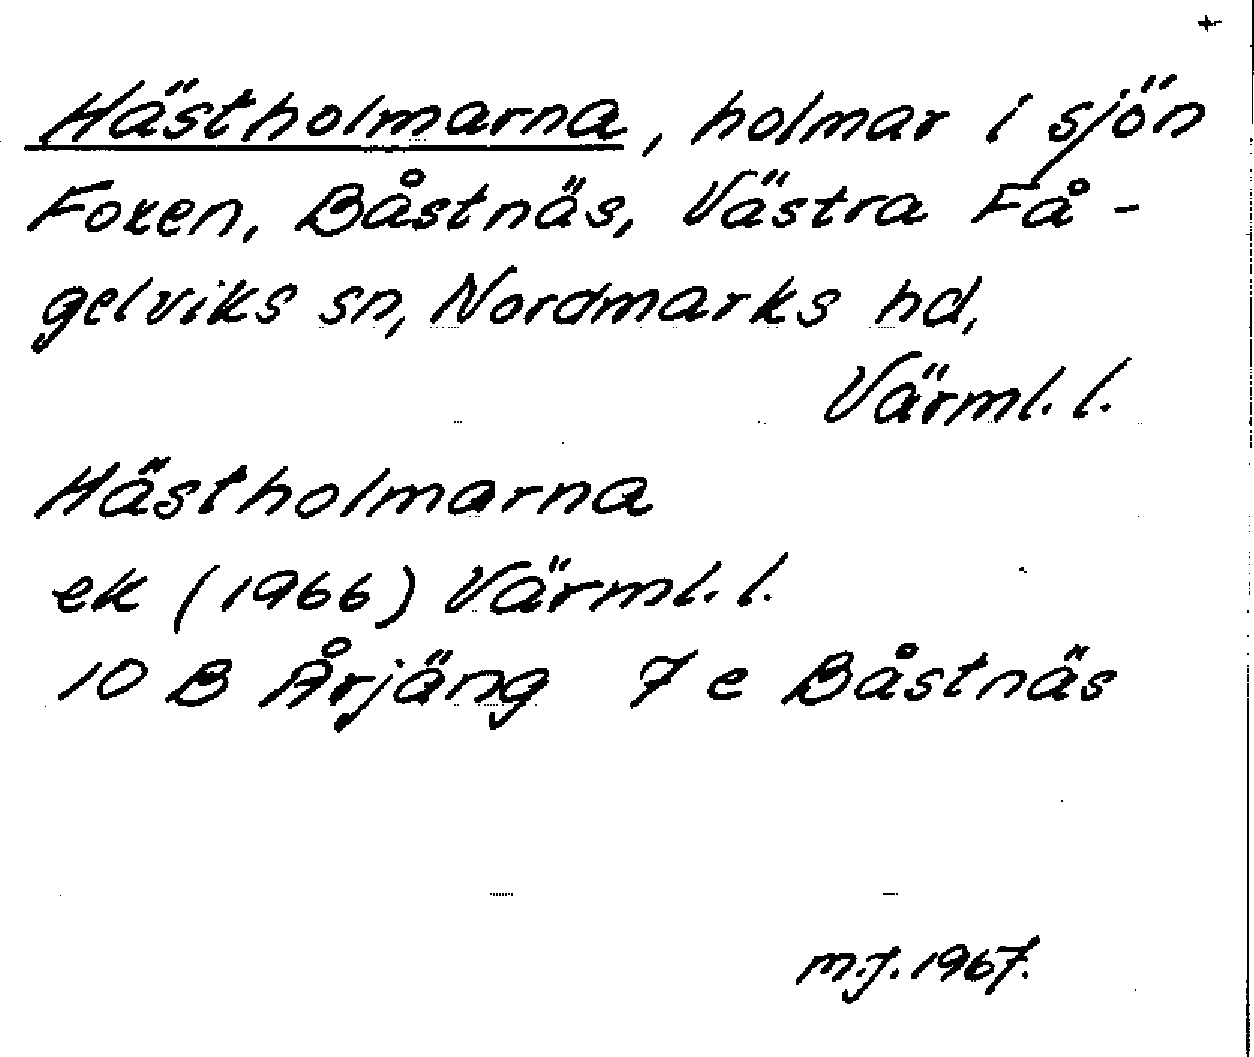 +
Hästholmarna, holmar i sjön
Foxen, Båstnäs, Västra Få-
gelviks sn, Nordmarks hd,
Värml. l.
Hästholmarna
ek (1966) Värml. l.
10 B Årjäng 7 e Båstnäs
M.J. 1967.